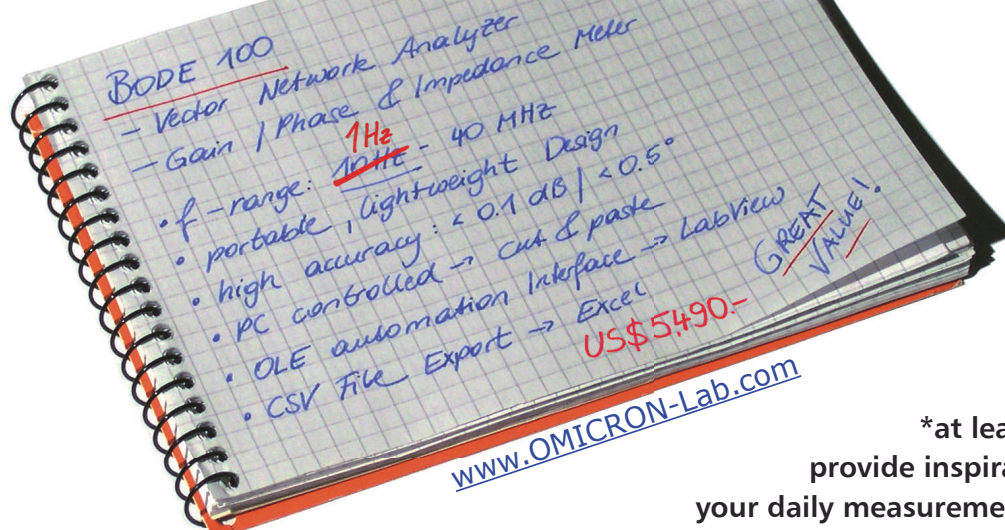 BODE 100
- Vector Network Analyzer
- Gain / Phase & Impedance Meter
1Hz
• f-range: 10Hz - 40 MHz
• portable, lightweight Design
• high accuracy: < 0.1 dB | < 0.5°
• PC controlled → cut & paste
• OLE automation Interface → LabView
• CSV File Export → Excel
GREAT
VALUE!
US$5,490.-
www.OMICRON-Lab.com
*at lea
provide inspira
your daily measureme